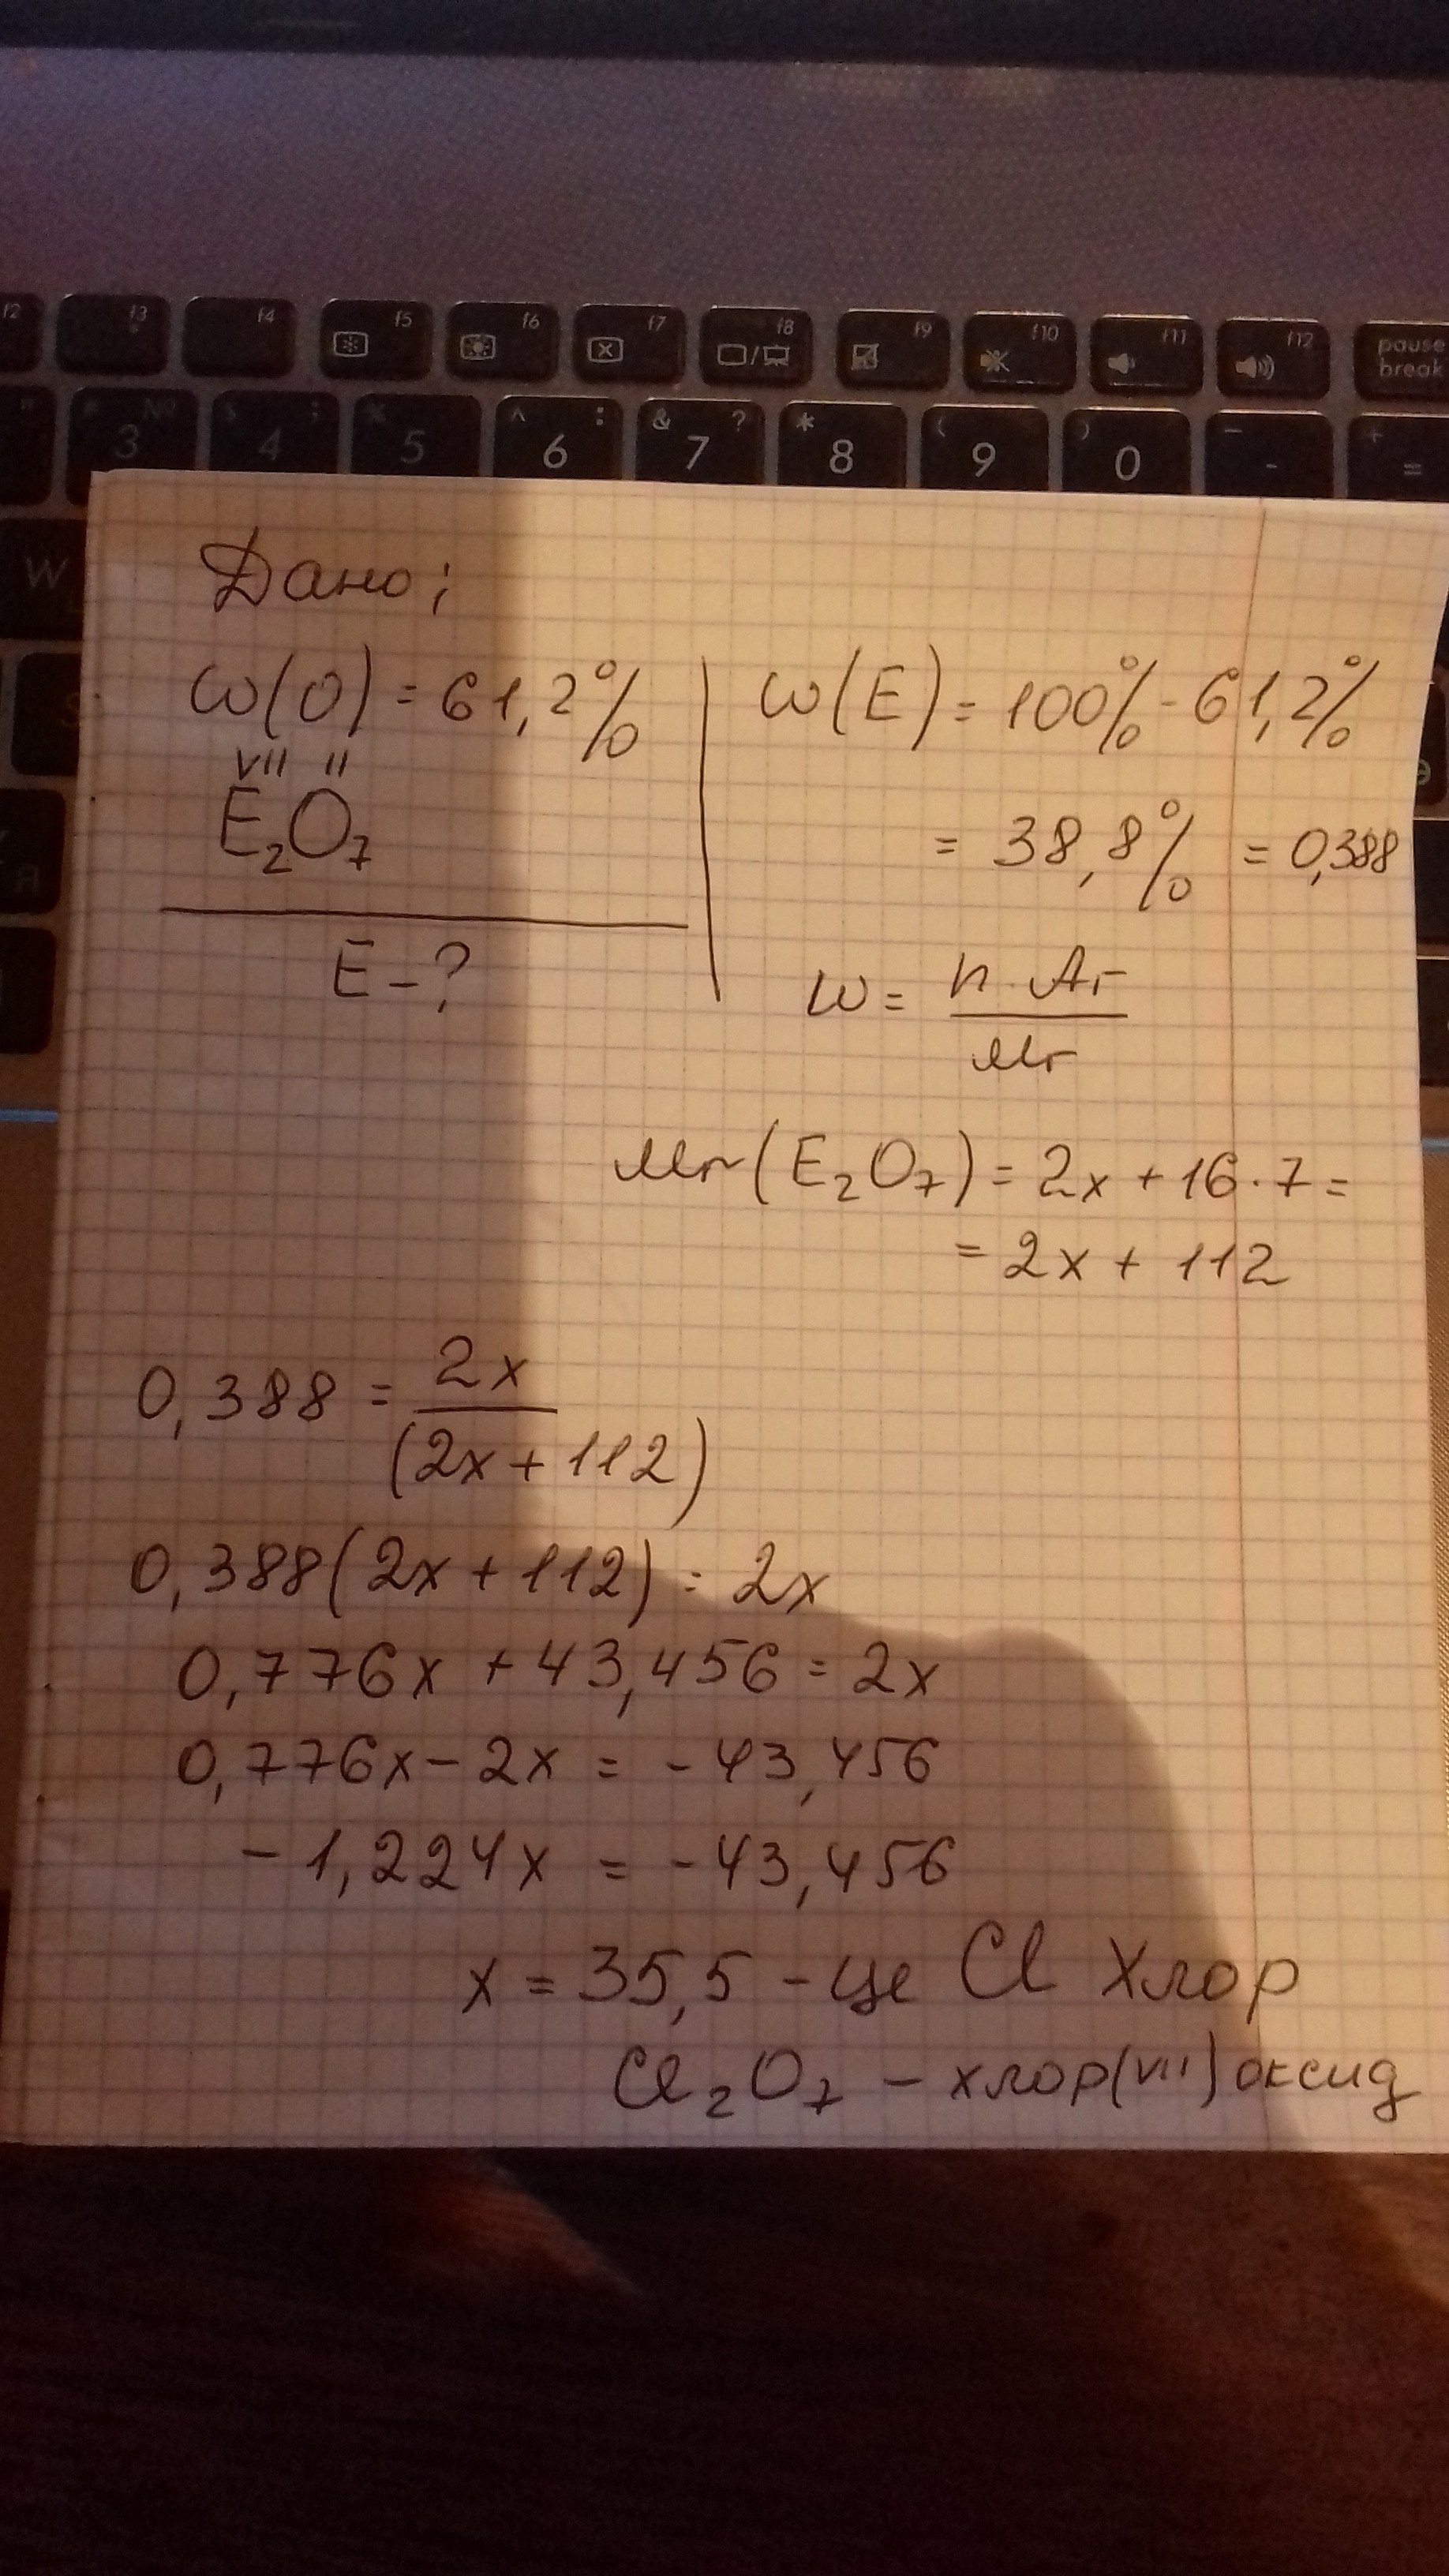 f2 f3 f4 f5 f6 f7 f8 f9 f10 f11 f12 pause break
# № 3 $ ; 4 % 5 ^ : 6 & ? 7 * 8 ( 9 ) 0 _ - + =
W
Я
Дано:
ω(O) = 61,2%
VII II
E₂O₇
E - ?
ω(E) = 100% - 61,2%
= 38,8% = 0,388
ω = n · Ar / Mr
Mr(E₂O₇) = 2x + 16 · 7 =
= 2x + 112
0,388 = 2x / (2x + 112)
0,388(2x + 112) = 2x
0,776x + 43,456 = 2x
0,776x - 2x = -43,456
-1,224x = -43,456
x = 35,5 - це Cl Хлор
Cl₂O₇ - хлор(VII) оксид